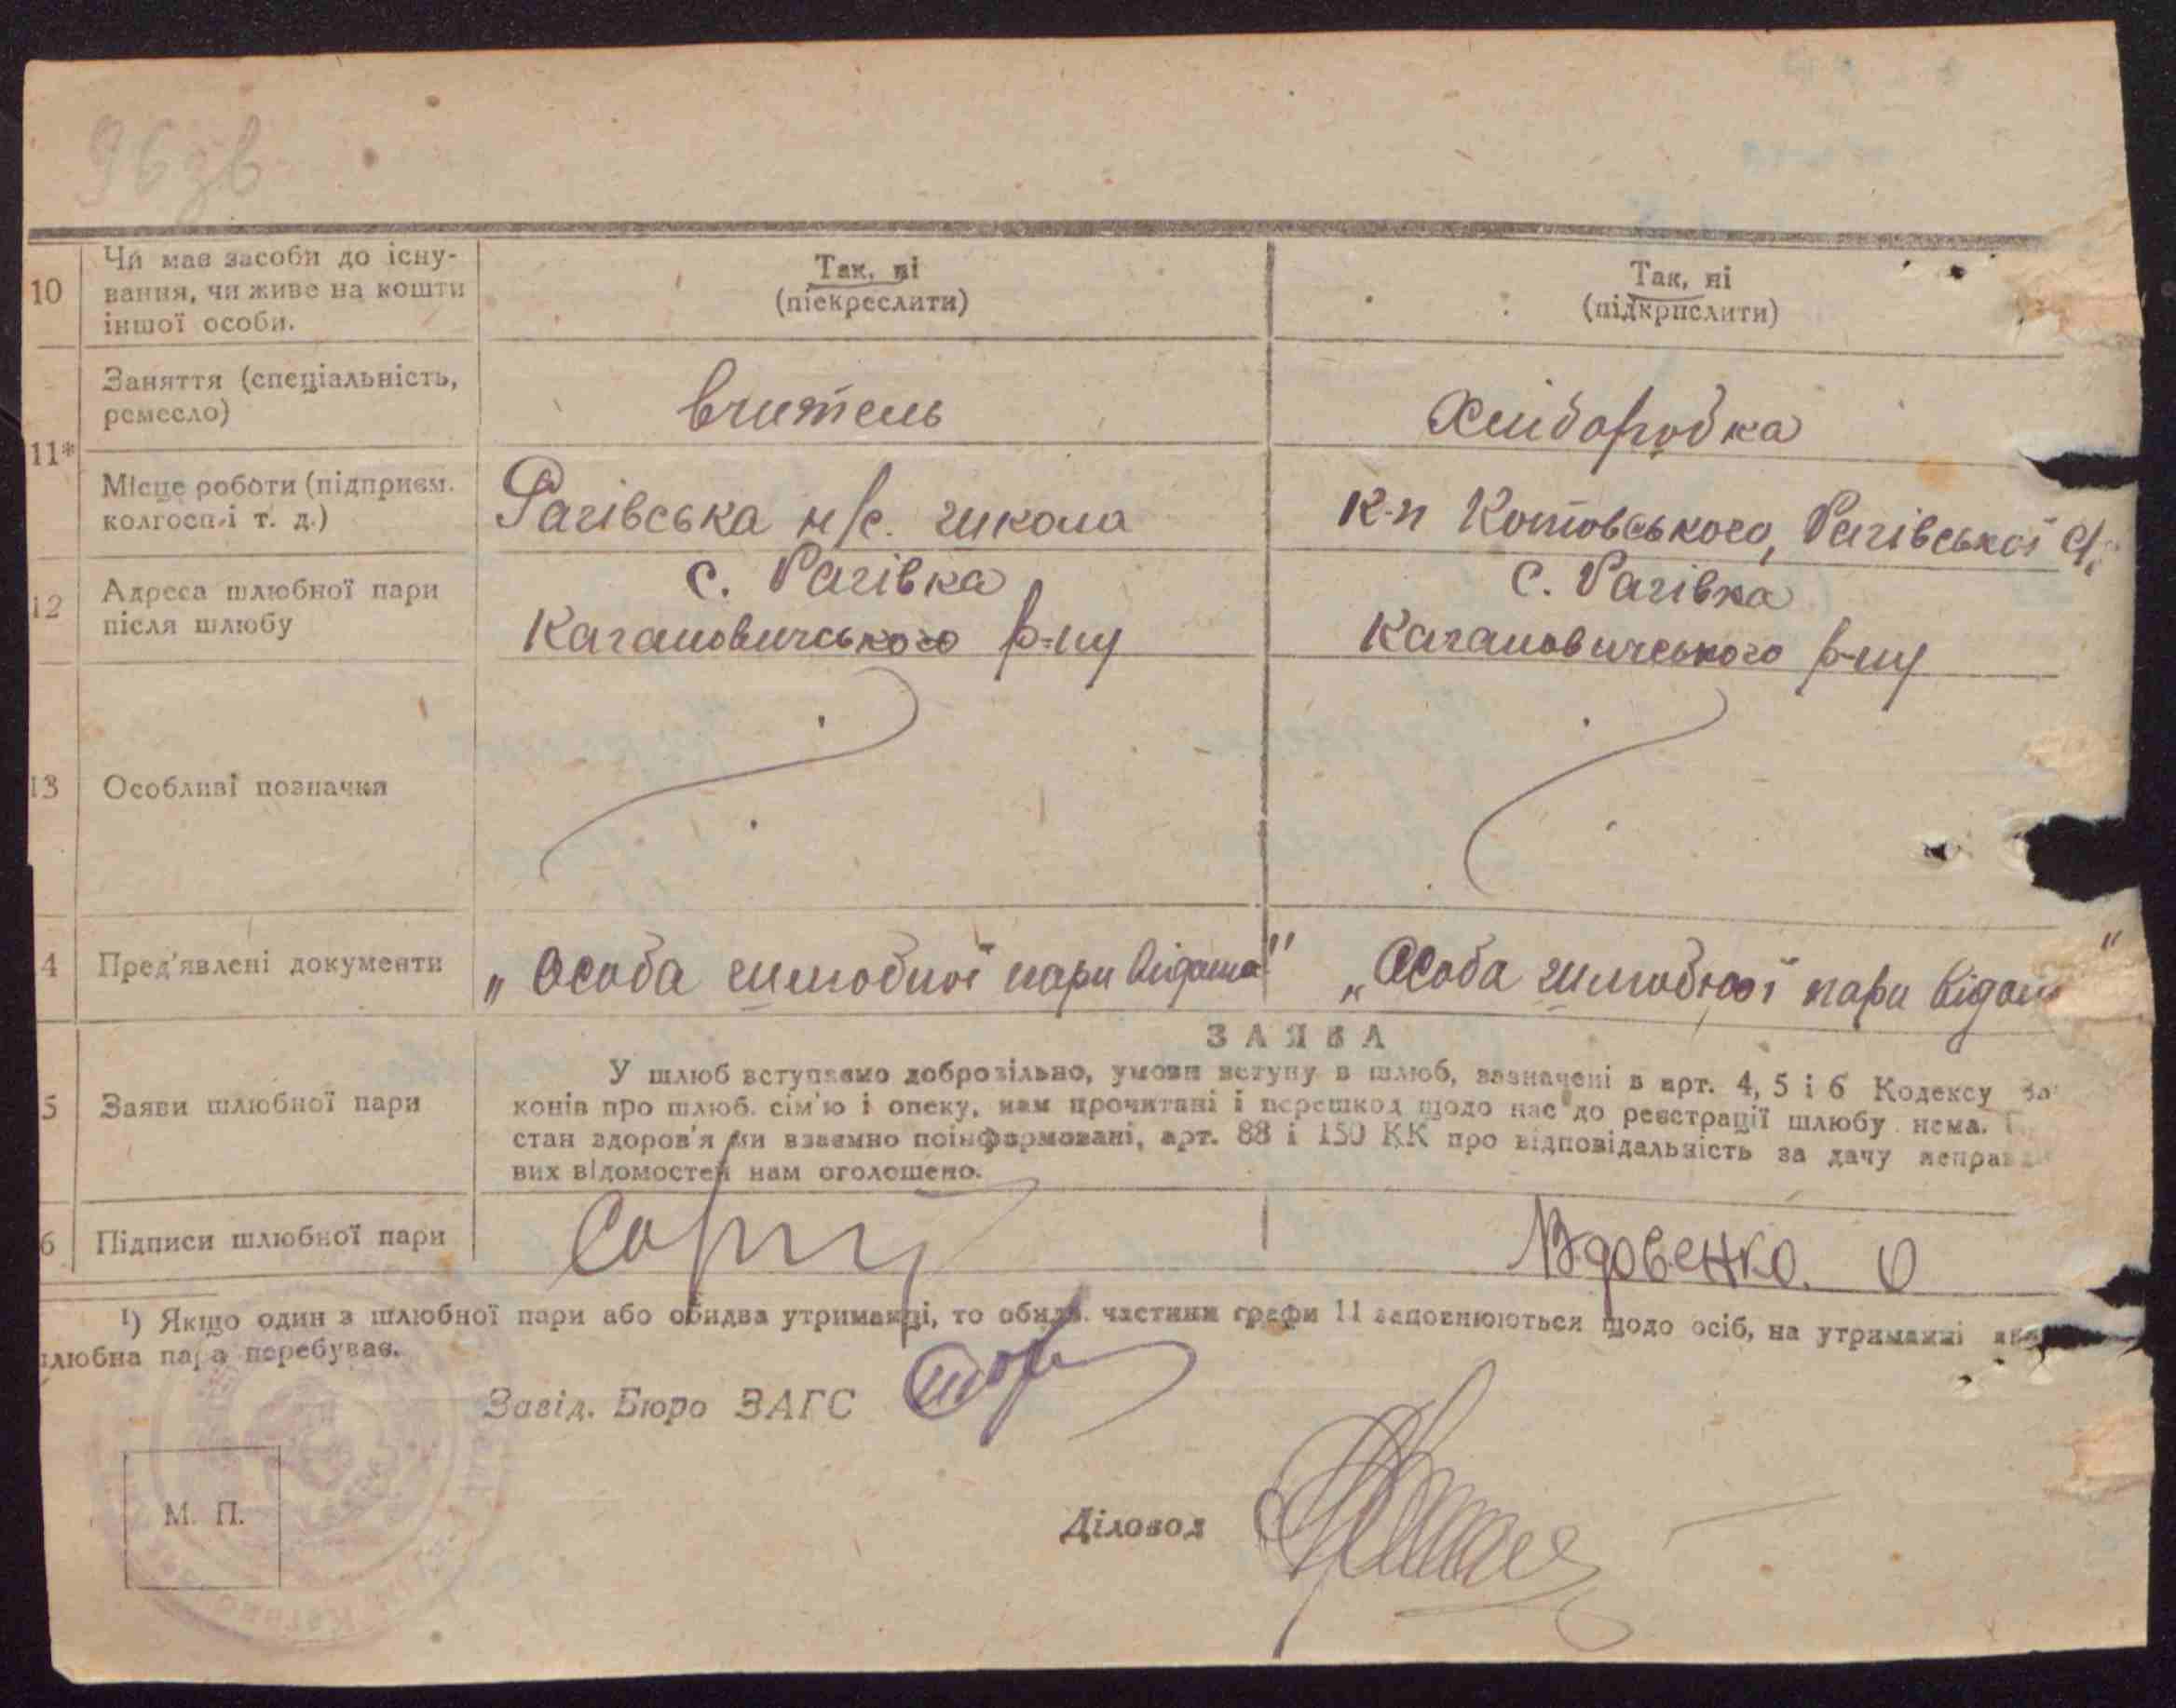 96зв
10
Чи має засоби до існу-
вання, чи живе на кошти
іншої особи.
Так, ні
(піекреслити)
Так, ні
(підкрислити)
11*
Заняття (спеціальність,
ремесло)
вчитель
Хліборобка
Місце роботи (підприєм.
колгосп і т. д.)
Рагівська н/с. школа
к-п Котовського, Рагівської с/
12
Адреса шлюбної пари
після шлюбу
с. Рагівка
Кагановичського р-ну
с. Рагівка
Кагановичського р-ну
13
Особливі позначки
4
Пред'явлені документи
„Особа шлюбної пари відома"
„Особа шлюбної пари відом "
5
Заяви шлюбної пари
ЗАЯВА
У шлюб вступаємо добровільно, умови вступу в шлюб, зазначені в арт. 4, 5 і 6 Кодексу За
конів про шлюб. сім'ю і опеку, нам прочитані і перешкод щодо нас до реєстрації шлюбу нема.
стан здоров'я ми взаємно поінформовані, арт. 88 і 150 КК про відповідальність за дачу неправд
вих відомостей нам оголошено.
6
Підписи шлюбної пари
Вдовенко. О
¹) Якщо один з шлюбної пари або обидва утриманці, то обидв. частини графи 11 заповнюються щодо осіб, на утриманні яки
любна пара перебуває.
Завід. Бюро ЗАГС
М. П.
Діловод